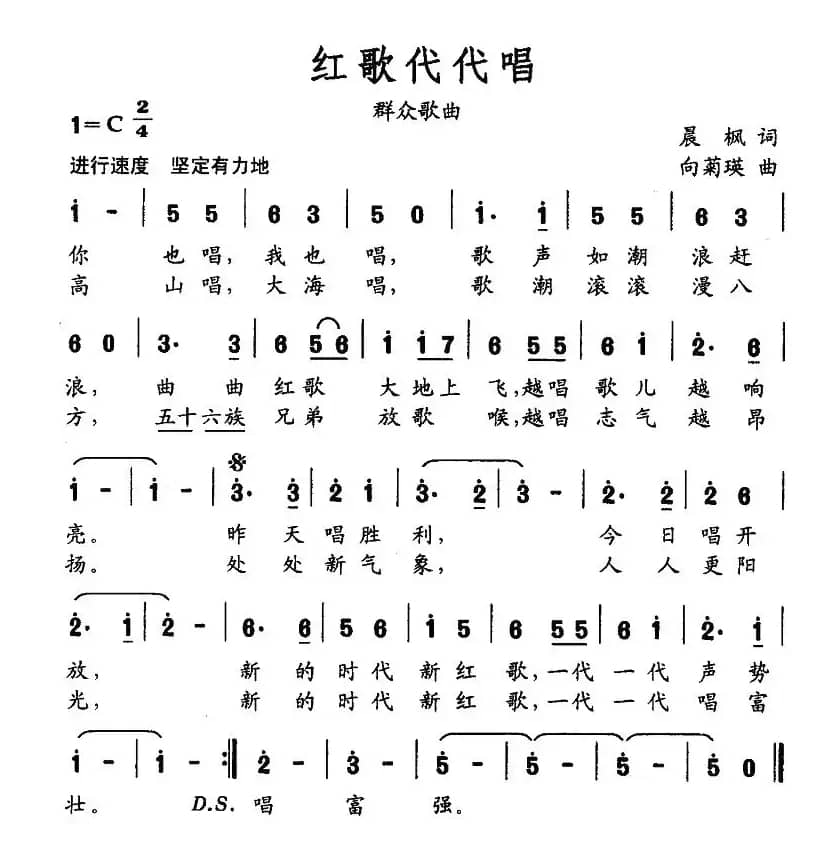 红歌代代唱
群众歌曲
1=C 2/4
晨枫 词
进行速度 坚定有力地
向菊瑛 曲
1̇ - | 5 5 | 6 3 | 5 0 | 1̇· 1̇ | 5 5 | 6 3 |
你 也唱, 我也 唱, 歌 声 如潮 浪赶
高 山唱, 大海 唱, 歌 潮 滚滚 漫八
6 0 | 3· 3 | 6 5 6 | 1̇ 1̇ 7 | 6 5 5 | 6 1̇ | 2̇· 6 |
浪, 曲 曲 红歌 大地上 飞,越唱 歌儿 越 响
方, 五十六族 兄弟 放歌 喉,越唱 志气 越 昂
1̇ - | 1̇ - | 3̇· 3̇ | 2̇ 1̇ | 3̇· 2̇ | 3̇ - | 2̇· 2̇ | 2̇ 6 |
亮。 昨 天 唱胜 利, 今 日 唱开
扬。 处 处 新气 象, 人 人 更阳
2̇· 1̇ | 2̇ - | 6· 6 | 5 6 | 1̇ 5 | 6 5 5 | 6 1̇ | 2̇· 1̇ |
放, 新 的 时代 新红 歌,一代 一代 声 势
光, 新 的 时代 新红 歌,一代 一代 唱 富
1̇ - | 1̇ - :| 2̇ - | 3̇ - | 5̇ - | 5̇ - | 5̇ - | 5̇ 0 ‖
壮。 D.S. 唱 富 强。